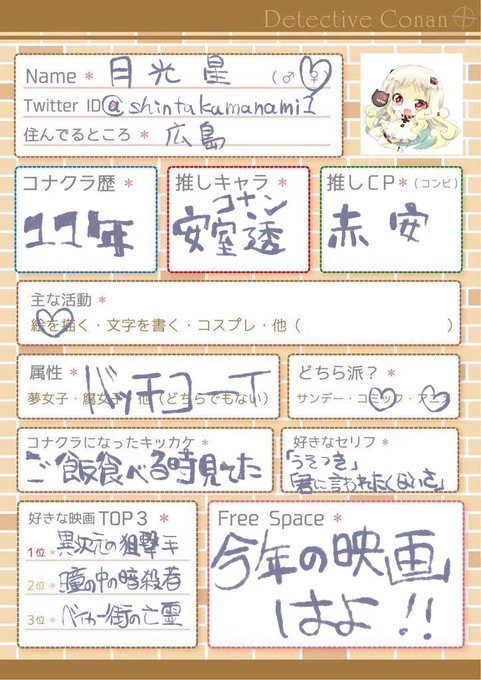 Detective Conan
Name * 月光星 (♂・♀)
Twitter ID @shintakumanami1
住んでるところ * 広島
コナクラ歴 *
11年
推しキャラ *
コナン
安室透
推しCP * (コンビ)
赤安
主な活動 *
絵を描く・文字を書く・コスプレ・他( )
属性 *
ドッチコーT
夢女子・腐女子・他(どちらでもない)
どちら派?*
サンデー・コミック・アニメ
コナクラになったキッカケ *
ご飯食べる時見てた
好きなセリフ *
「うそつき」
「君に言われたくはないさ」
好きな映画TOP3 *
1位 * 異次元の狙撃手
2位 * 瞳の中の暗殺者
3位 * ベイカー街の亡霊
Free Space *
今年の映画
はよ!!